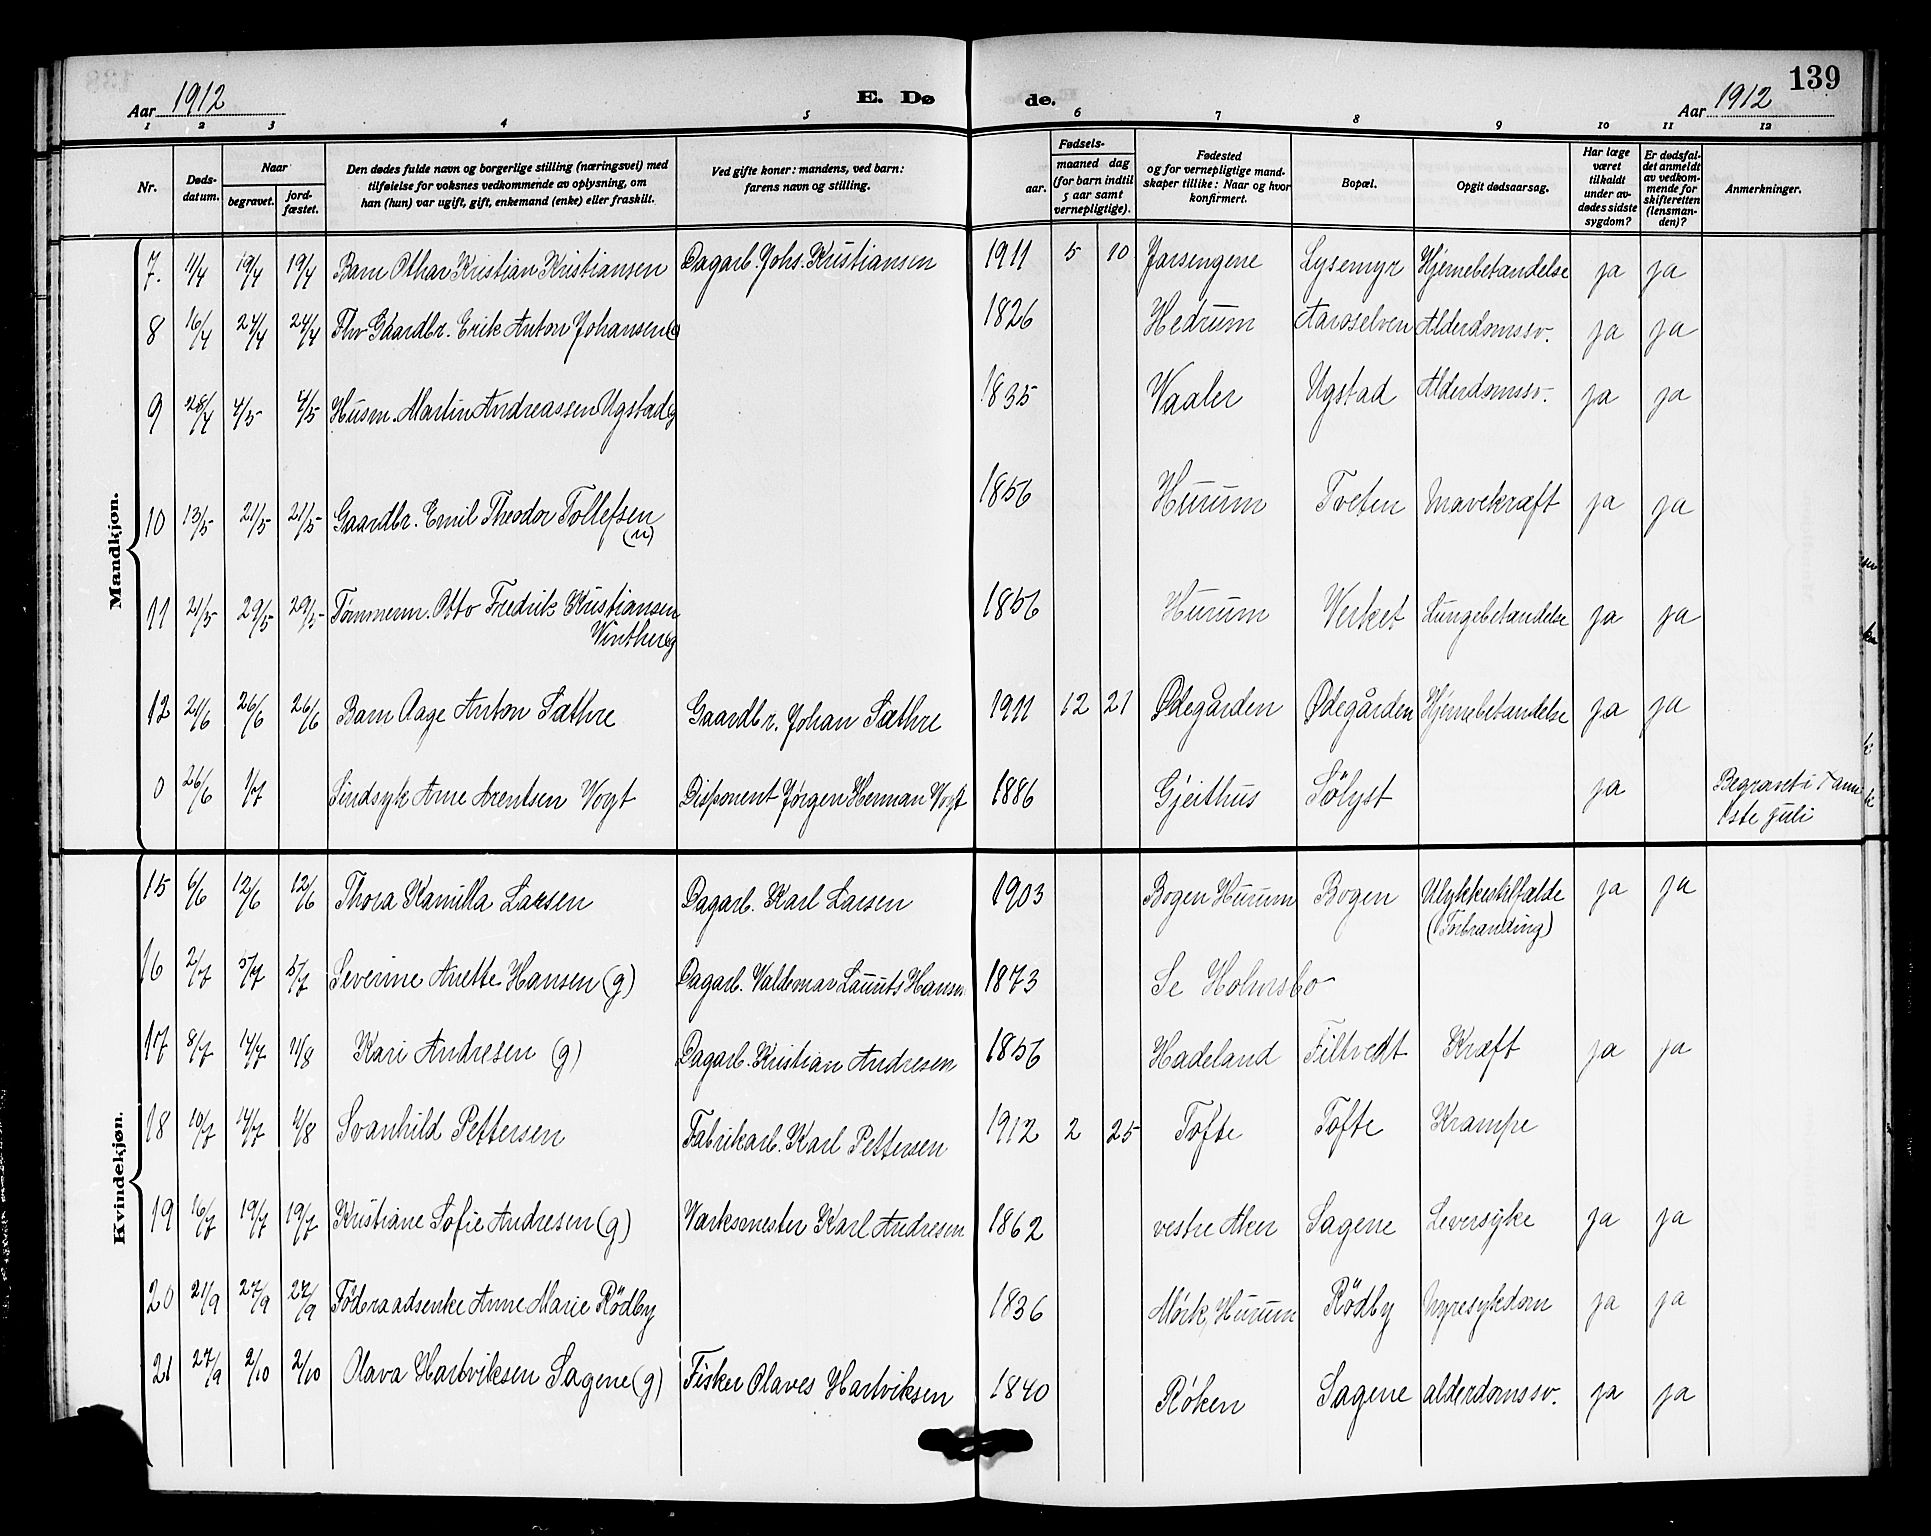 139
Aar 1912
E. Dø de.
Aar 1912
1 2 3 4 5 6 7 8 9 10 11 12
Nr.
Døds-
datum.
Naar
begravet.
jord-
fæstet.
Den dødes fulde navn og borgerlige stilling (næringsvei) med
tilføielse for voksnes vedkommende av oplysning, om
han (hun) var ugift, gift, enkemand (enke) eller fraskilt.
Ved gifte koner: mandens, ved barn:
farens navn og stilling.
Fødsels-
aar.
maaned dag
(for barn indtil
5 aar samt
vernepligtige).
Fødested
og for vernepligtige mand-
skaper tillike: Naar og hvor
konfirmert.
Bopæl.
Opgit dødsaarsag.
Har læge
været
tilkaldt
under av-
dødes sidste
sygdom?
Er dødsfal-
det anmeldt
av vedkom-
mende for
skifteretten
(lensman-
den)?
Anmerkninger.
Mandkjøn.
7. 11/4 19/4 19/4 Barn Othar Kristian Kristiansen Dagarb. Johs. Kristiansen 1911 5 10 Jarsengene Lysemyr Hjernebetændelse ja ja
8 16/4 24/4 24/4 Fhv Gaardbr. Erik Anton Johansen 1826 Hedrum Aaroselven Alderdomssv. ja ja
9 28/4 4/5 4/5 Husm. Martin Andreassen Ugstad g 1835 Vaaler Ugstad Alderdomssv. ja ja
10 13/5 21/5 21/5 Gaardbr. Emil Theodor Tollefsen 1856 Hurum Tveten Mavekræft ja ja
(u)
11 21/5 29/5 29/5 Tømmerm. Otto Fredrik Kristiansen 1856 Hurum Verket Lungebetændelse ja ja
Winther g
12 21/6 26/6 26/6 Barn Aage Anton Sæthre Gaardbr. Johan Sæthre 1911 12 21 Ødegården Ødegården Hjernebetændelse ja ja
0 26/6 1/7 Sindsyk Arne Arentsen Vogt Disponent Jørgen Herman Vogt 1886 Gjeithus Sølyst ja Begravet i
1ste juli
Kvindekjøn.
15 6/6 12/6 12/6 Thora Kamilla Larsen Dagarb. Karl Larsen 1903 Bogen Hurum Bogen Ulykkestilfælde ja ja
(Forbrænding)
16 2/7 5/7 5/7 Severine Anette Hansen (g) Dagarb. Valdemar Laurits Hansen 1873 Se Holmsbo
17 8/7 14/7 11/8 Kari Andresen (g) Dagarb. Kristian Andresen 1856 Hadeland Filtvedt Kræft ja ja
18 10/7 14/7 11/8 Svanhild Pettersen Fabrikarb. Karl Pettersen 1912 2 25 Tofte Tofte Krampe
19 16/7 19/7 19/7 Kristiane Sofie Andresen (g) Værksmester Karl Andresen 1862 vestre Aker Sagene Leversyke ja ja
20 21/9 27/9 27/9 Föderaadsenke Anne Marie Rödby 1836 Mørk, Hurum Rödby Nyresykdom ja ja
21 27/9 2/10 2/10 Olava Hartviksen Sagene (g) Fisker Olaves Hartviksen 1840 Røken Sagene alderdomssv. ja ja